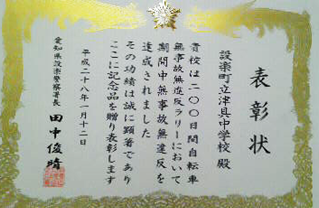 表彰状
設楽町立津具中学校 殿
貴校は二〇〇日間自転車
無事故無違反ラリーにおいて
期間中無事故無違反を
達成されました
その功績は誠に顕著であり
ここに記念品を贈り表彰します
平成二十八年一月十二日
愛知県設楽警察署長
田中俊晴